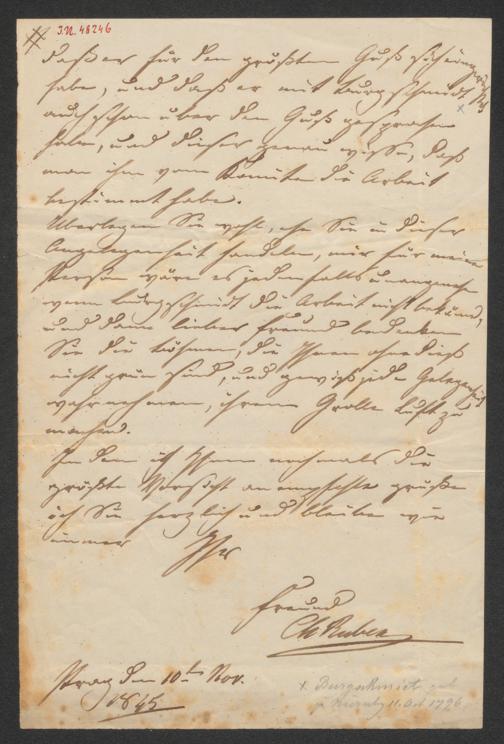 J.N. 48246
daß er für den größten Guß sich eingerichtet
habe, und daß er mit Burgschmidt
auch schon über den Guß gesprochen
habe, und dieser genau wisse, daß
man ihm vom Komite die Arbeit
bestimmt habe.
Überlegen Sie wohl, ehe Sie in dieser
Angelegenheit handeln, mir für meine
Person wäre es jedenfalls unangenehm
wenn Burgschmidt die Arbeit nicht bekäme,
und dann lieber Freund bedenken
Sie die Böhmen, die Ihnen ohnedieß
nicht grün sind, und gewiß jede Gelegenheit
wahrnehmen, ihrem Grolle Luft zu
machen.
In dem ich Ihnen nochmals die
größte Vorsicht anempfehle grüße
ich Sie herzlich und bleibe wie
immer Ihr
Freund
Ch Ruben
Prag den 10ten Nov.
1845
x Burgschmiet geb
z Nürnbg 11. Oct 1796